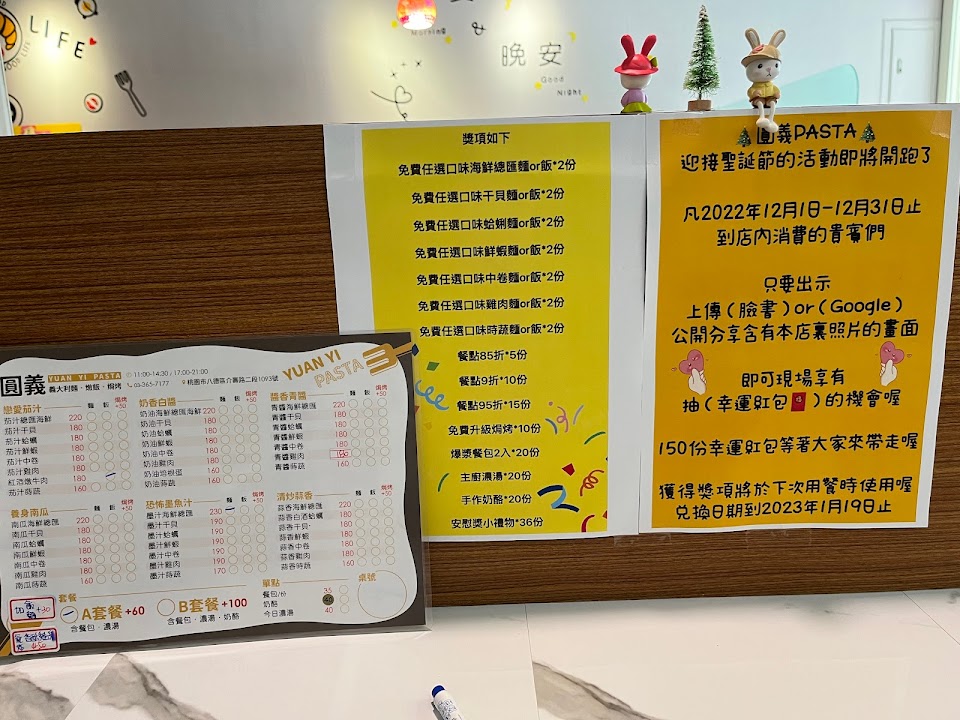 LIFE
&
晚安
Good
Night
獎項如下
免費任選口味海鮮總匯麵or飯*2份
免費任選口味干貝麵or飯*2份
免費任選口味蛤蜊麵or飯*2份
免費任選口味鮮蝦麵or飯*2份
免費任選口味中卷麵or飯*2份
免費任選口味雞肉麵or飯*2份
免費任選口味時蔬麵or飯*2份
餐點85折*5份
餐點9折*10份
餐點95折*15份
免費升級焗烤*10份
爆漿餐包2入*20份
主廚濃湯*20份
手作奶酪*20份
安慰獎小禮物*36份
圓義PASTA
迎接聖誕節的活動即將開跑了
凡2022年12月1日-12月31日止
到店內消費的貴賓們
只要出示
上傳(臉書)or(Google)
公開分享含有本店裏照片的畫面
即可現場享有
抽(幸運紅包)的機會喔
150份幸運紅包等著大家來帶走喔
獲得獎項將於下次用餐時使用喔
兌換日期到2023年1月19日止
圓義
YUAN YI PASTA
義大利麵・燉飯・焗烤
11:00-14:30 / 17:00-21:00
03-365-7177
桃園市八德區介壽路二段1093號
YUAN YI
PASTA
戀愛茄汁 麵 飯 焗烤+50
茄汁總匯海鮮 220
茄汁干貝 180
茄汁蛤蠣 180
茄汁鮮蝦 180
茄汁中卷 180
茄汁雞肉 180
紅酒燉牛肉 180
茄汁蒔蔬 160
奶香白醬 麵 飯 焗烤+50
奶油海鮮總匯海鮮 220
奶油干貝 180
奶油蛤蠣 180
奶油鮮蝦 180
奶油中卷 180
奶油雞肉 180
奶油培根蛋 180
奶油蒔蔬 160
醬香青醬 麵 飯 焗烤+50
青醬海鮮總匯 220
青醬干貝 180
青醬蛤蠣 180
青醬鮮蝦 180
青醬中卷 180
青醬雞肉
青醬蒔蔬 160
養身南瓜 麵 飯 焗烤+50
南瓜海鮮總匯 220
南瓜干貝 180
南瓜蛤蠣 180
南瓜鮮蝦 180
南瓜中卷 180
南瓜雞肉 180
南瓜蒔蔬 160
恐怖墨魚汁 麵 飯 焗烤+50
墨汁海鮮總匯 230
墨汁干貝 190
墨汁蛤蠣 190
墨汁鮮蝦 190
墨汁中卷 190
墨汁雞肉 190
墨汁蒔蔬 170
清炒蒜香 麵 飯 焗烤+50
蒜香海鮮總匯 220
蒜香白酒蛤蠣 180
蒜香干貝 180
蒜香鮮蝦 180
蒜香中卷 180
蒜香雞肉 180
蒜香時蔬 160
套餐
A套餐+60
含餐包・濃湯
B套餐+100
含餐包・濃湯・奶酪
單點
餐包/份 35
奶酪
今日濃湯 40
桌號